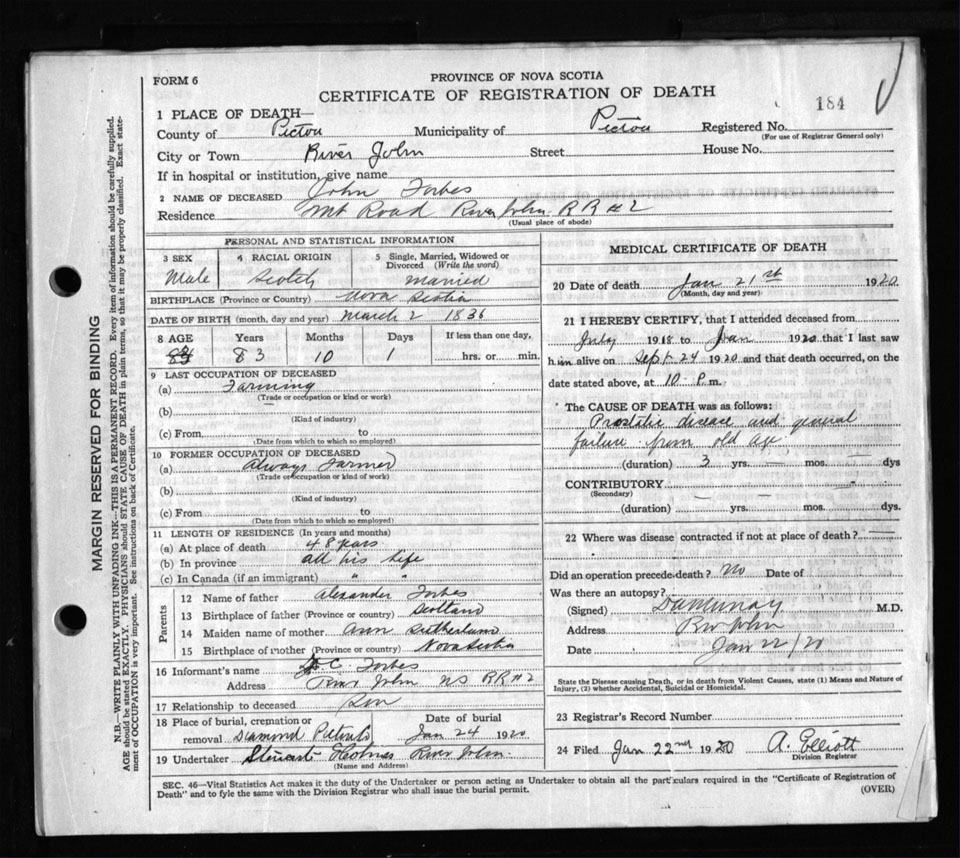 FORM 6
PROVINCE OF NOVA SCOTIA
CERTIFICATE OF REGISTRATION OF DEATH
184
1 PLACE OF DEATH—
County of Pictou Municipality of Pictou Registered No.
(For use of Registrar General only)
City or Town River John Street House No.
If in hospital or institution, give name
2 NAME OF DECEASED John Forbes
Residence Mt Road River John RR #2
(Usual place of abode)
PERSONAL AND STATISTICAL INFORMATION
3 SEX 4 RACIAL ORIGIN 5 Single, Married, Widowed or Divorced (Write the word)
Male Scotch Married
BIRTHPLACE (Province or Country) Nova Scotia
DATE OF BIRTH (month, day and year) March 2 1836
8 AGE Years Months Days If less than one day,
83 10 1 hrs. or min.
9 LAST OCCUPATION OF DECEASED
(a) Farming
(Trade or occupation or kind or work)
(b)
(Kind of industry)
(c) From to
(Date from which to which so employed)
10 FORMER OCCUPATION OF DECEASED
(a) Always Farmer
(Trade or occupation or kind of work)
(b)
(Kind of industry)
(c) From to
(Date from which to which so employed)
11 LENGTH OF RESIDENCE (In years and months)
(a) At place of death 48 years
(b) In province all his life
(c) In Canada (if an immigrant) " "
Parents
12 Name of father Alexander Forbes
13 Birthplace of father (Province or country) Scotland
14 Maiden name of mother Ann Sutherland
15 Birthplace of mother (Province or country) Nova Scotia
16 Informant's name C Forbes
Address River John NS RR #2
17 Relationship to deceased Son
18 Place of burial, cremation or removal Date of burial
Jan 24 1920
19 Undertaker Holmes River John
(Name and Address)
MEDICAL CERTIFICATE OF DEATH
20 Date of death Jan 21st 1920
(Month, day and year)
21 I HEREBY CERTIFY, that I attended deceased from
July 1918 to Jan 1920 that I last saw
him alive on Sept 24 1920 and that death occurred, on the
date stated above, at 10 P.m.
The CAUSE OF DEATH was as follows:
Prostatic disease and general
failure from old age
(duration) 3 yrs. — mos. — dys
CONTRIBUTORY
(Secondary)
(duration) — yrs. — mos. dys.
22 Where was disease contracted if not at place of death? —
Did an operation precede death? No Date of
Was there an autopsy?
(Signed) DaMurray M.D.
Address Riv John
Date Jan 22/20
State the Disease causing Death, or in death from Violent Causes, state (1) Means and Nature of
Injury, (2) whether Accidental, Suicidal or Homicidal.
23 Registrar's Record Number
24 Filed Jan 22nd 1920 A. Elliott
Division Registrar
SEC. 46—Vital Statistics Act makes it the duty of the Undertaker or person acting as Undertaker to obtain all the particulars required in the "Certificate of Registration of
Death" and to fyle the same with the Division Registrar who shall issue the burial permit.
(OVER)
MARGIN RESERVED FOR BINDING
N.B.—WRITE PLAINLY WITH UNFADING INK—THIS IS A PERMANENT RECORD. Every item of information should be carefully supplied.
AGE should be stated EXACTLY. PHYSICIANS should STATE CAUSE OF DEATH in plain terms, so that it may be properly classified. Exact state-
ment of OCCUPATION is very important. See instructions on back of Certificate.